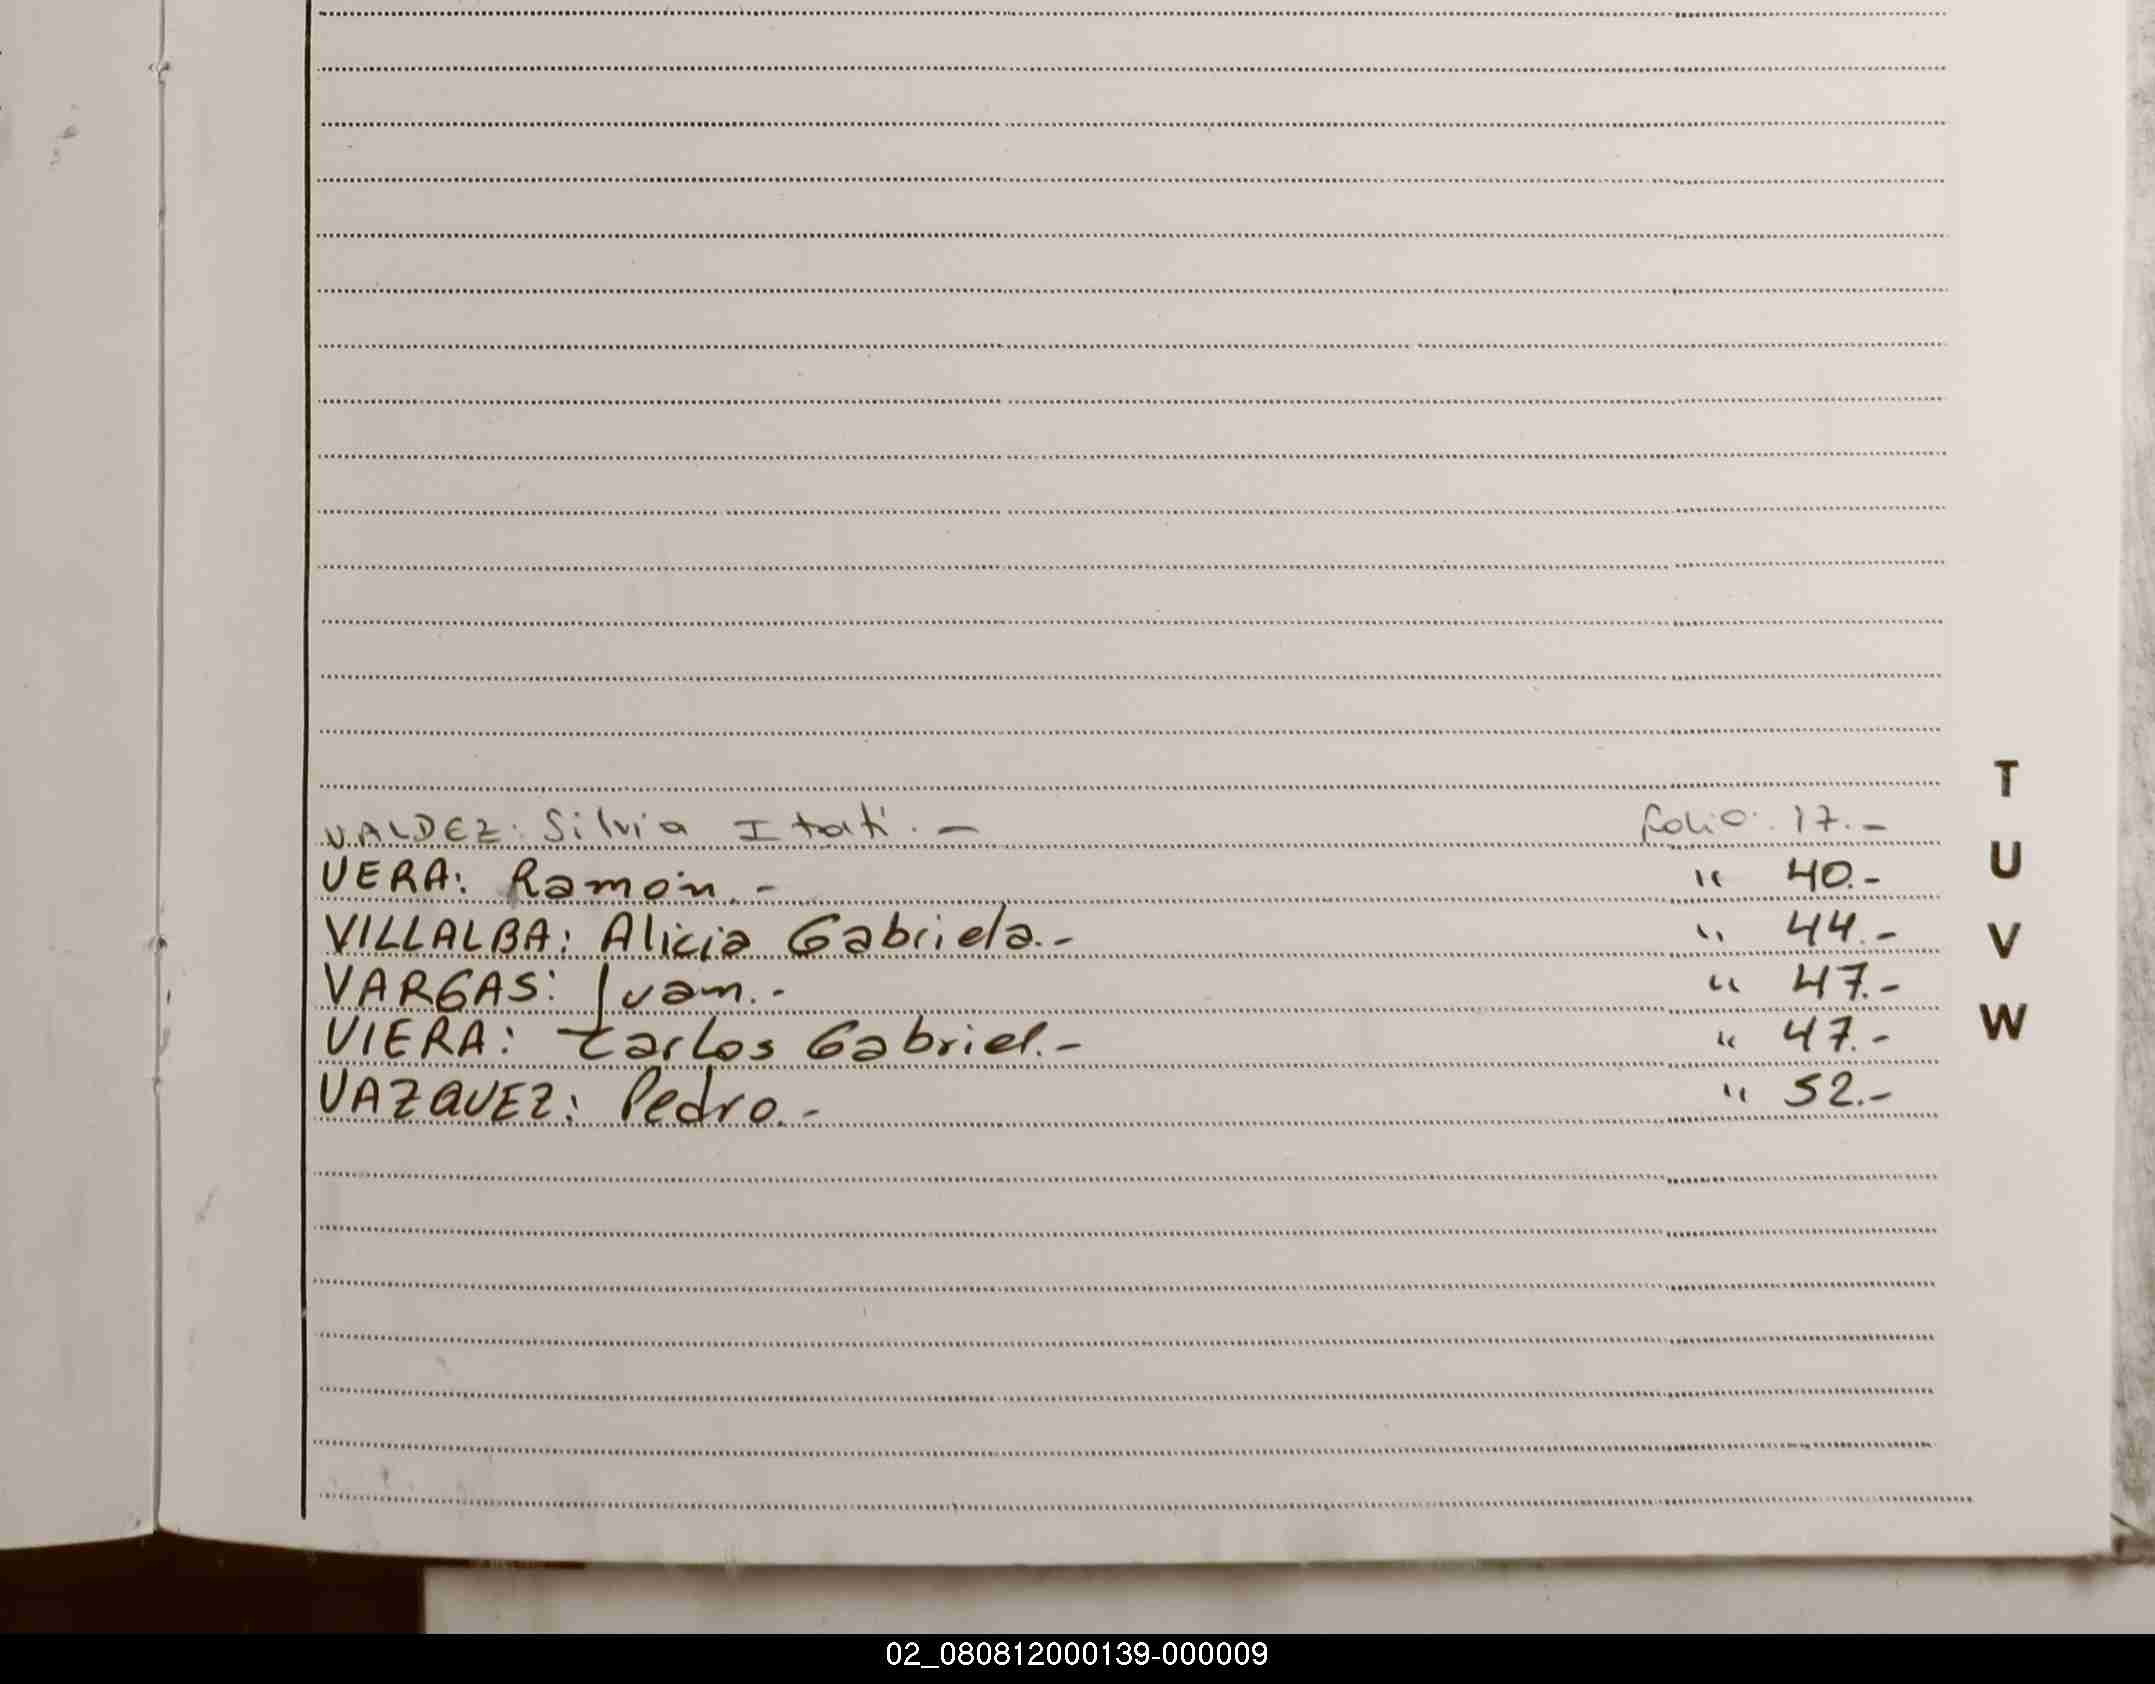 VALDEZ: Silvia Itatí.- folio. 17.-
VERA: Ramón.- " 40.-
VILLALBA: Alicia Gabriela.- " 44.-
VARGAS: Juan.- " 47.-
VIERA: Carlos Gabriel.- " 47.-
VAZQUEZ: Pedro.- " 52.-
T
U
V
W
02_080812000139-000009